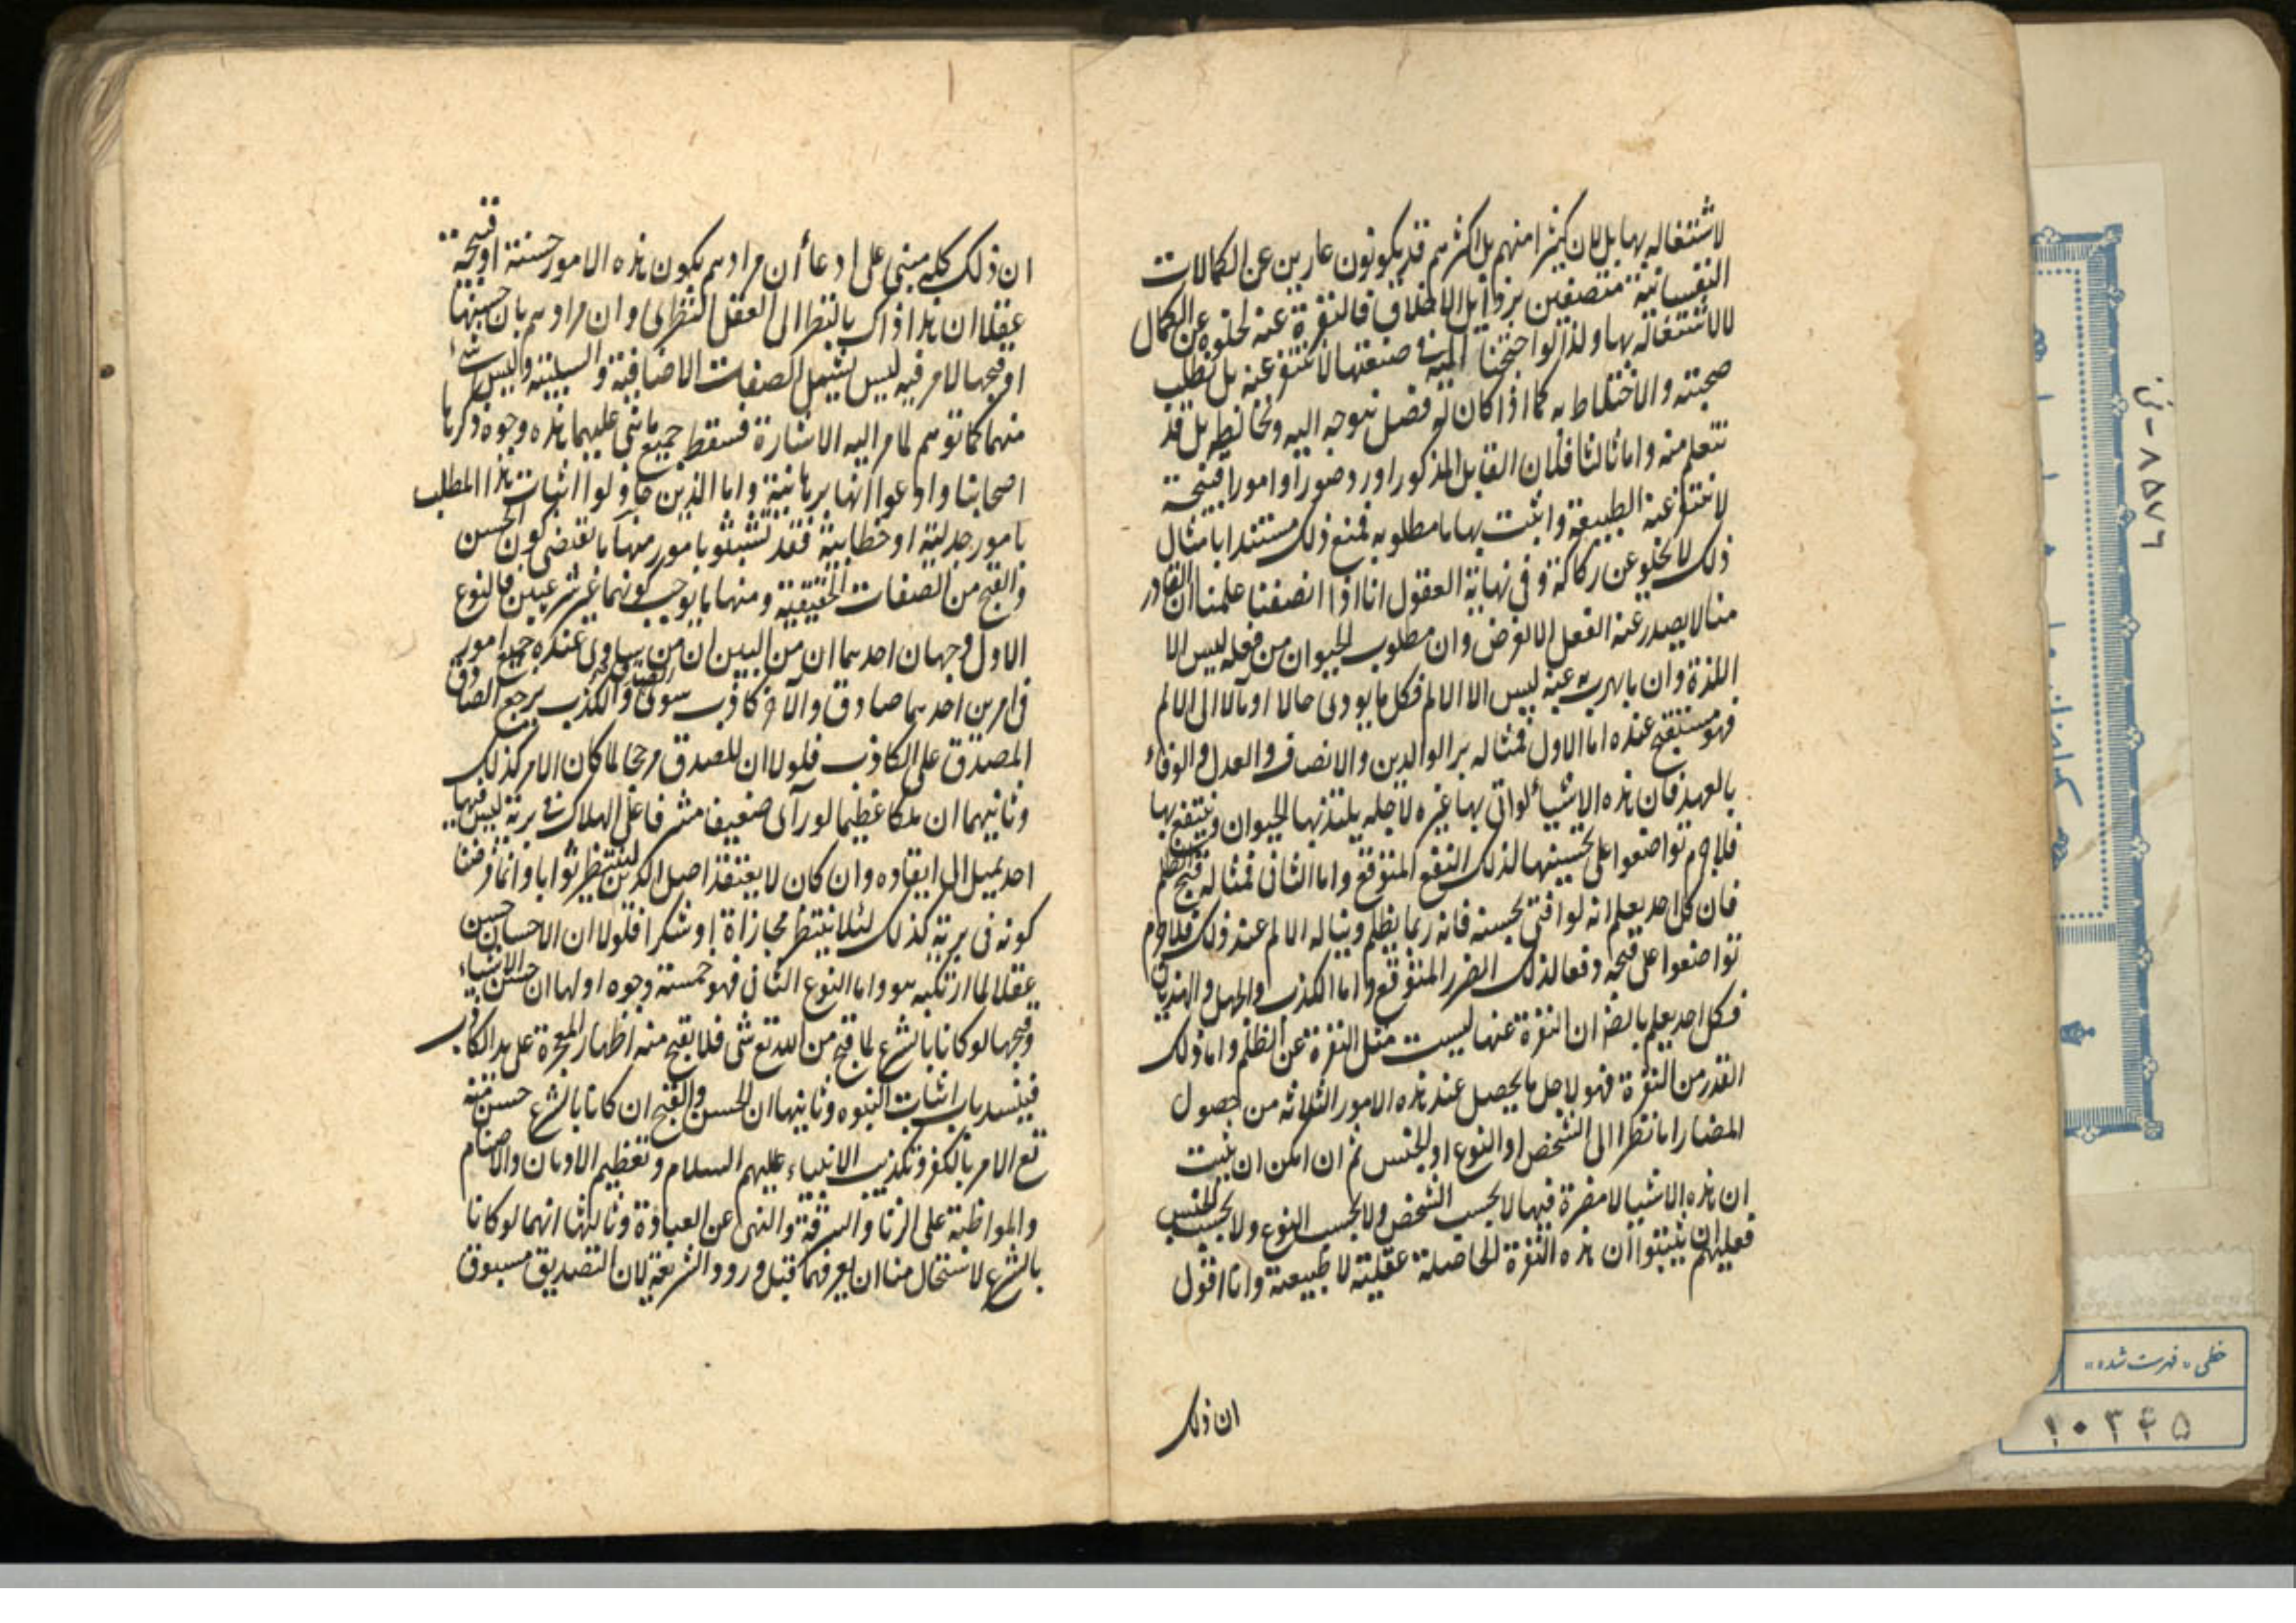 لاشتغاله بها بل لان كثيرا منهم بل اكثرهم قد يكونون عارين عن الكمالات
النفسانية متصفين برذائل الاخلاق فالنفرة عنه لخلوه عن الكمال
لا لاشتغاله بها ولذا لو احتجنا اليه في صنعتها لا نتنفر عنه بل نطلب
صحبته والاختلاط به كما اذا كان له فضل نتوجه اليه ونخالطه بل قد
نتعلم منه واما ثالثا فلان القايل المذكور اورد صورا وامورا قبيحة
لا تتنفر عنه الطبيعة واثبت بها ما مطلوبه فمنع ذلك مستندا بامثال
ذلك لا يخلو عن ركاكة وفي نهاية العقول انا اذا انصفنا علمنا ان القادر
منا لا يصدر عنه الفعل الا لغرض وان مطلوب الحيوان من فعله ليس الا
اللذة وان ما يهرب عنه ليس الا الالم فكل ما يودى حالا او مآلا الى الالم
فهو مستقبح عنده اما الاول فمثاله بر الوالدين والانصاف والعدل والوفاء
بالعهد فان هذه الاشياء لو اتى بها غيره لاجله يلتذ بها الحيوان وينتفع بها
فلا جرم تواضعوا على تحسينها لذلك النفع المتوقع واما الثاني فمثاله قبح الظلم
فان كل احد يعلم انه لو افتى بحسنه فانه ربما يظلم ويناله الالم عند ذلك فلا جرم
تواضعوا على قبحه دفعا لذلك الضرر المتوقع واما الكذب والجهل والهذيان
فكل احد يعلم بالضران النفرة عنها ليست مثل النفرة عن الظلم واما ذلك
القدر من النفرة فهو لاجل ما يحصل عند هذه الامور الثلاثه من حصول
المضار اما نظرا الى الشخص او النوع او الجنس ثم ان امكن ان يثبت
ان هذه الاشيا لا مضرة فيها لا بحسب الشخص ولا بحسب النوع ولا بحسب الجنس
فعليهم ان يثبتوا ان هذه النفرة الحاصلة عقلية لا طبيعية وانا اقول
ان ذلك
ان ذلك كله مبنى على ادعا أن مرادهم بكون هذه الامور حسنة او قبيحة
عقلا ان هذا ذاك بالنظر الى العقل النظرى وان مرادهم بان حسنها
او قبحها لامر فيه ليس يشمل الصفات الاضافية والسلبية وليس شئ
منهما كما توهم لما مر اليه الاشارة فسقط جميع ما بنى عليهما هذه وجوه ذكرها
اصحابنا وادعوا انها برهانية واما الذين حاولوا اثبات هذا المطلب
بامور جدلية او خطابية فقد تشبثو بامور منها ما يقتضى كون الحسن
والقبح من الصفات الحقيقية ومنها ما يوجب كونهما غير شرعيين فالنوع
الاول وجهان احدهما ان من البين ان من يساوى عنده جميع امور
في امرين احدهما صادق والآخر كاذب سوى الصدق والكذب يرجح الصادق
المصدق على الكاذب فلولا ان للصدق مرجحا لما كان الامر كذلك
وثانيهما ان ملكا عظيما لو رآى ضعيف مشرفا على الهلاك في برية ليس فيها
احد يميل الى انقاذه وان كان لا يعتقد اصل الدين لينتظر ثوابا وانما فرضنا
كونه في برية كذلك لئلا ينتظر مجازاة او شكرا فلولا ان الاحسان حسن
عقلا لما ارتكبه هو واما النوع الثانى فهو خمسة وجوه اولها ان حسن الاشياء
وقبحها لو كانا بالشرع لما قبح من الله تع شى فلا يقبح منه اظهار المعجزة على يد الكاذب
فينسد باب اثبات النبوه وثانيها ان الحسن والقبح ان كانا بالشرع حسن منه
تع الامر بالكفر وتكذيب الانبياء عليهم السلام وتعظيم الاوثان والاصنام
والمواظبة على الزنا والسرقة والنهى عن العبادة وثالثها انهما لو كانا
بالشرع لاستحال منا ان يعرفهما قبل ورود الشريعة لان التصديق مسبوق
٨٥٧٦ - ن
خطى «فهرست شده»
١٠٣٤٥